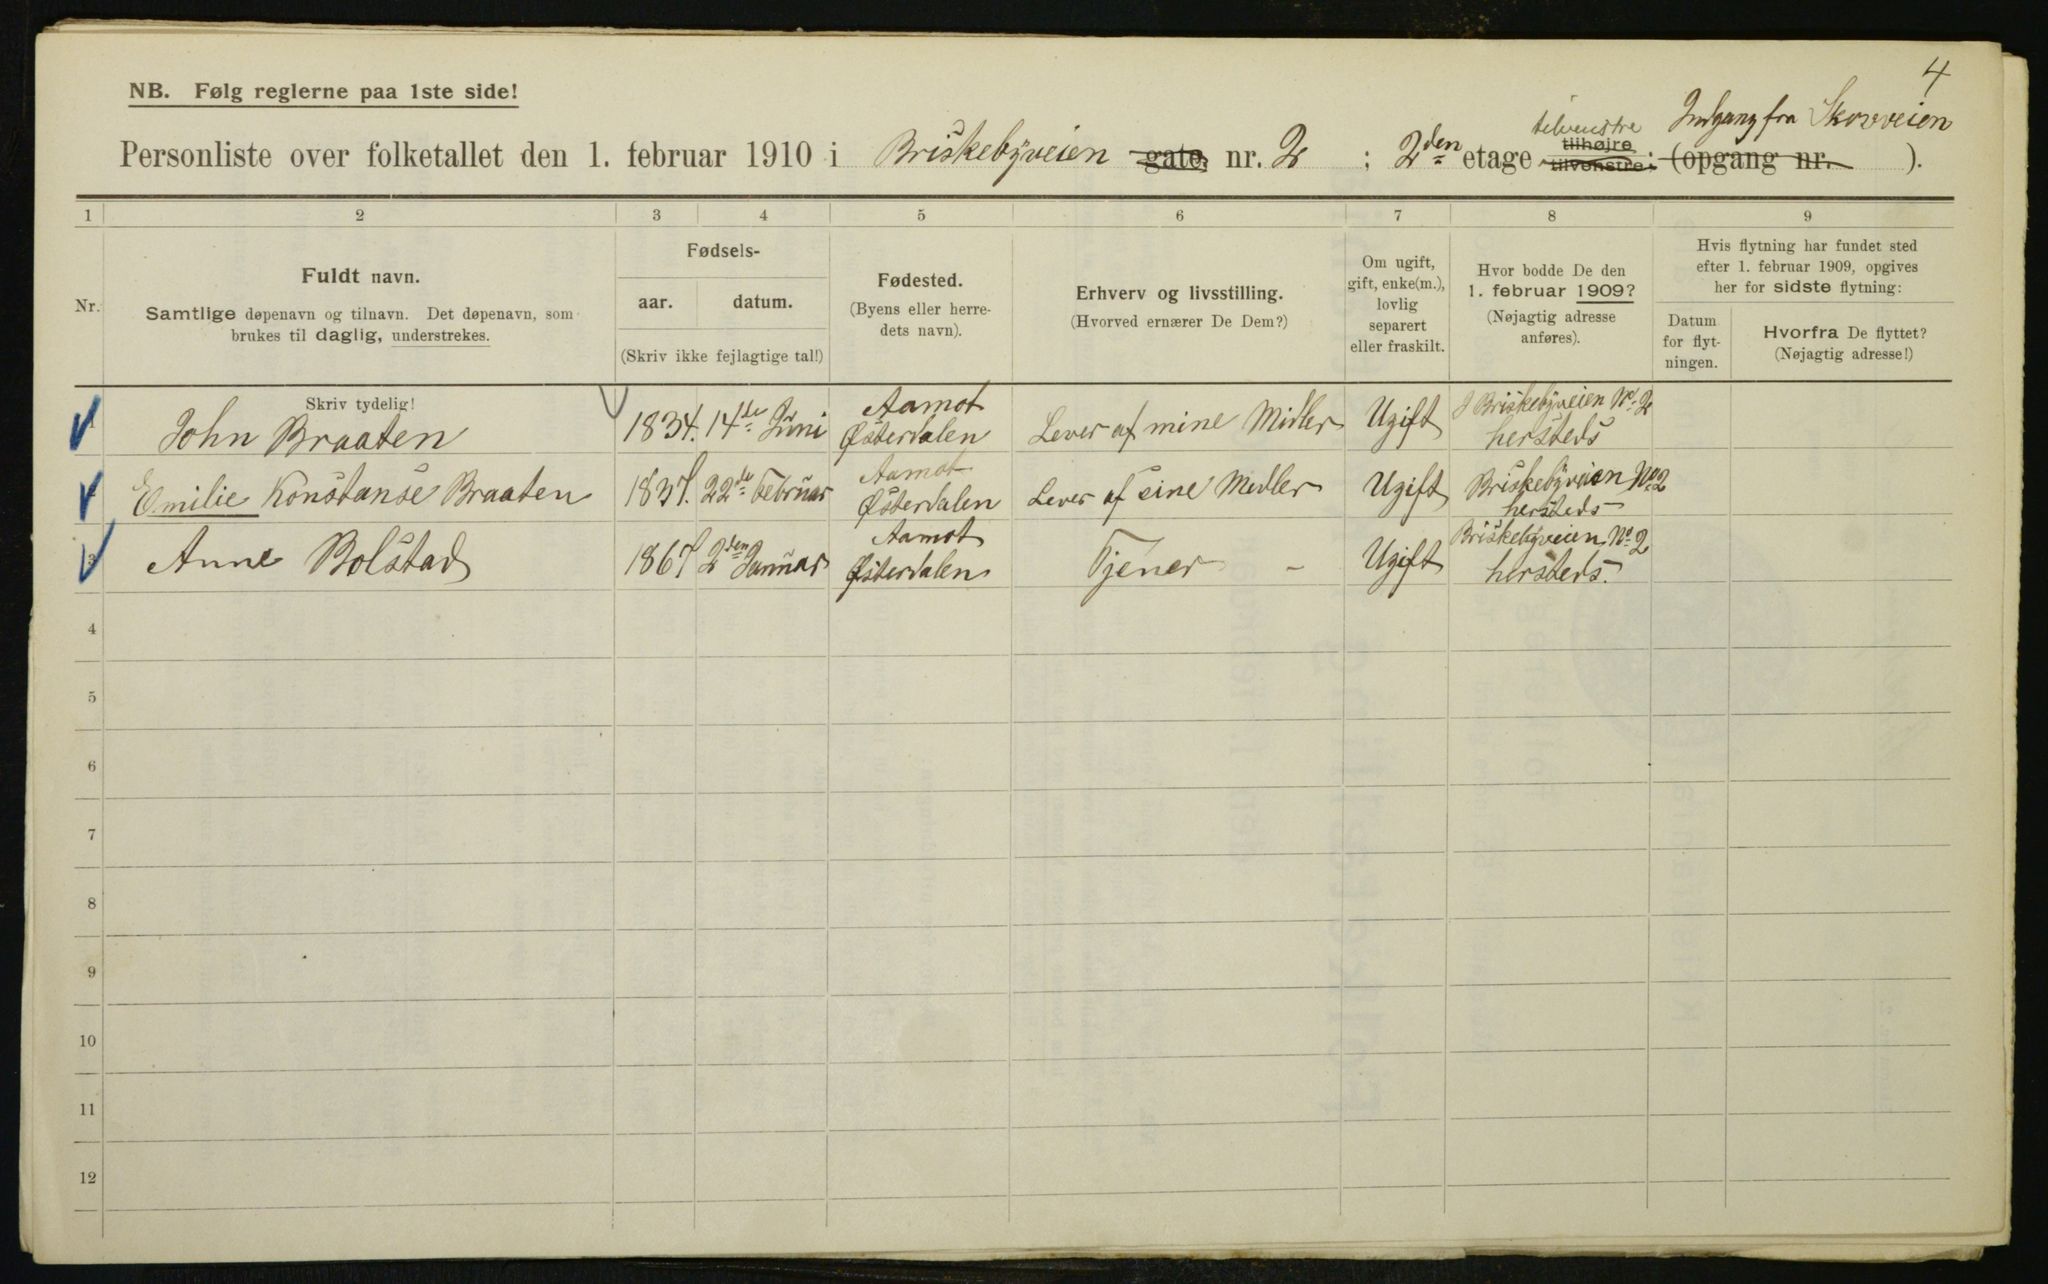 4
NB. Følg reglerne paa 1ste side!
Personliste over folketallet den 1. februar 1910 i Briskebyveien gate, nr. 2 ; 2den etage tilhøjre tilvenstre tilvenstre; (opgang nr. Indgang fra Skovveien ).
1 2 3 4 5 6 7 8 9
Nr.
Fuldt navn.
Samtlige døpenavn og tilnavn. Det døpenavn, som
brukes til daglig, understrekes.
Fødsels-
aar. datum.
(Skriv ikke fejlagtige tal!)
Fødested.
(Byens eller herre-
dets navn).
Erhverv og livsstilling.
(Hvorved ernærer De Dem?)
Om ugift,
gift, enke(m.),
lovlig
separert
eller fraskilt.
Hvor bodde De den
1. februar 1909?
(Nøjagtig adresse
anføres).
Hvis flytning har fundet sted
efter 1. februar 1909, opgives
her for sidste flytning:
Datum
for flyt-
ningen.
Hvorfra De flyttet?
(Nøjagtig adresse!)
Skriv tydelig!
1 John Braaten 1834. 14de Juni Aamot Østerdalen Lever af mine Midler Ugift I Briskebyveien No 2 hersteds
Emilie Konstanse Braaten 1837. 22de Februar Aamot Østerdalen Lever af sine Midler Ugift Briskebyveien No 2 hersteds
3 Anne Bolstad 1867 2den Januar Aamot Østerdalen Tjener - Ugift Briskebyveien No 2 hersteds.
4
5
6
7
8
9
10
11
12